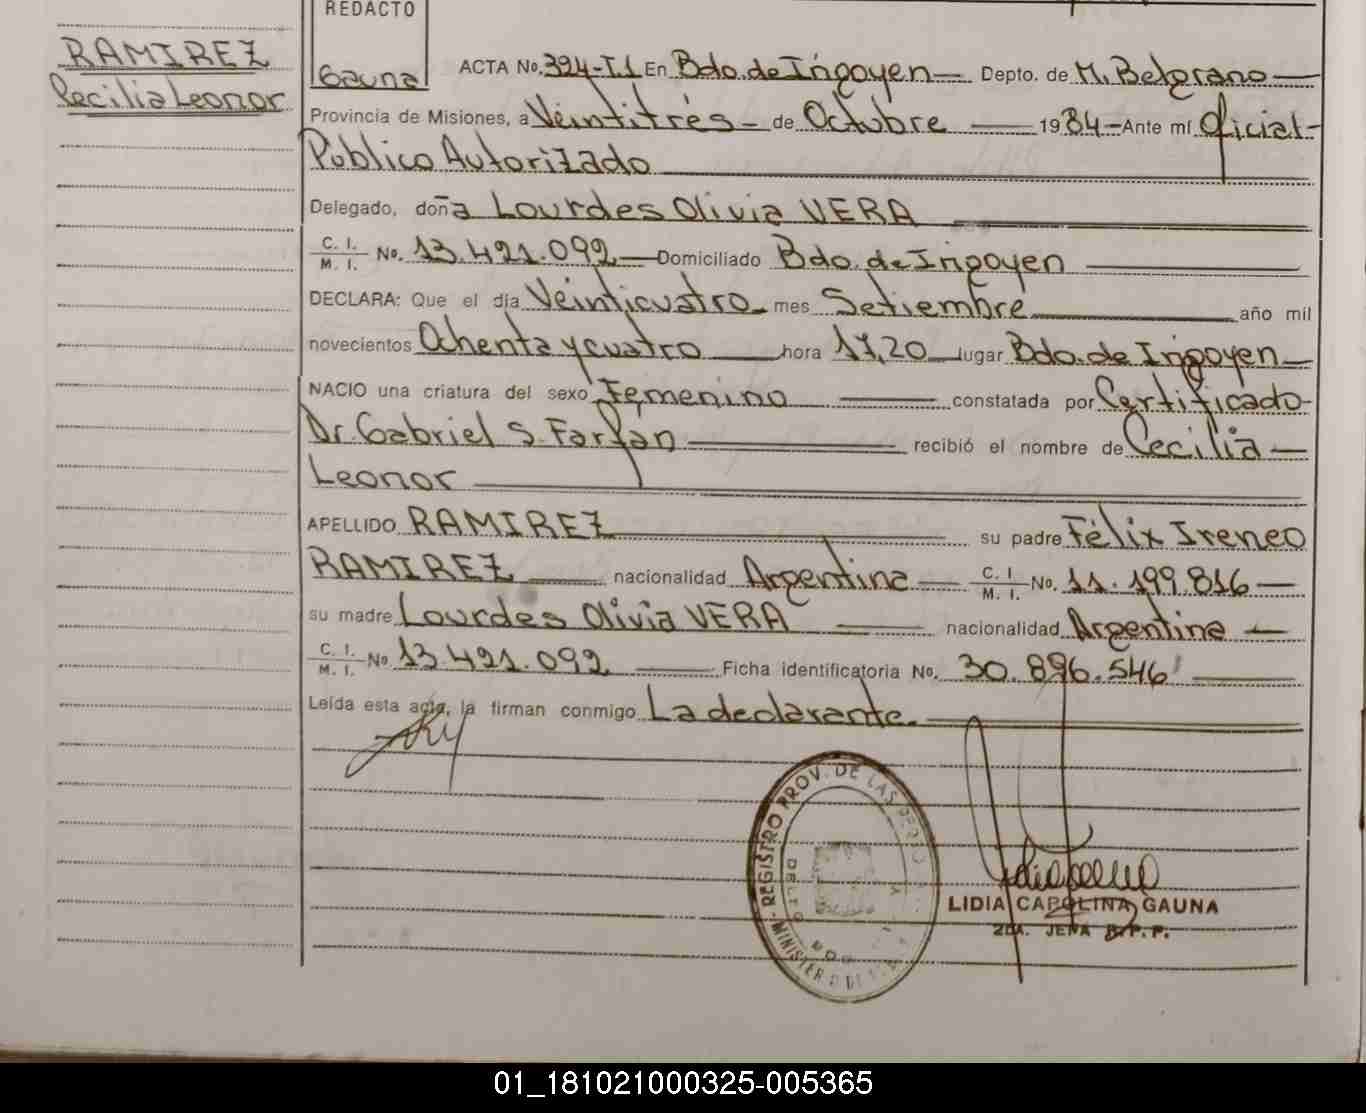 REDACTO
Gauna
RAMIREZ
Cecilia Leonor
ACTA No. 324-T.1 En Bdo. de Irigoyen Depto. de M. Belgrano
Provincia de Misiones, a Veintitrés de Octubre 1984 Ante mí Oficial
Publico Autorizado
Delegado, doña Lourdes Olivia VERA
C. I. M. I. No. 13.421.092 Domiciliado Bdo. de Irigoyen
DECLARA: Que el día Veinticuatro mes Setiembre año mil
novecientos Ochenta y cuatro hora 17,20 lugar Bdo. de Irigoyen
NACIO una criatura del sexo Femenino constatada por Certificado
Dr. Gabriel S. Farfan recibió el nombre de Cecilia
Leonor
APELLIDO RAMIREZ su padre Félix Ireneo
RAMIREZ nacionalidad Argentina C. I. M. I. No. 11.199.816
su madre Lourdes Olivia VERA nacionalidad Argentina
C. I. M. I. No 13.421.092 Ficha identificatoria No. 30.896.546
Leída esta acta, la firman conmigo La declarante.
REGISTRO PROV. DE LAS
MINISTERIO DE
LIDIA CAROLINA GAUNA
2DA. JEFA R.P.P.
01_181021000325-005365